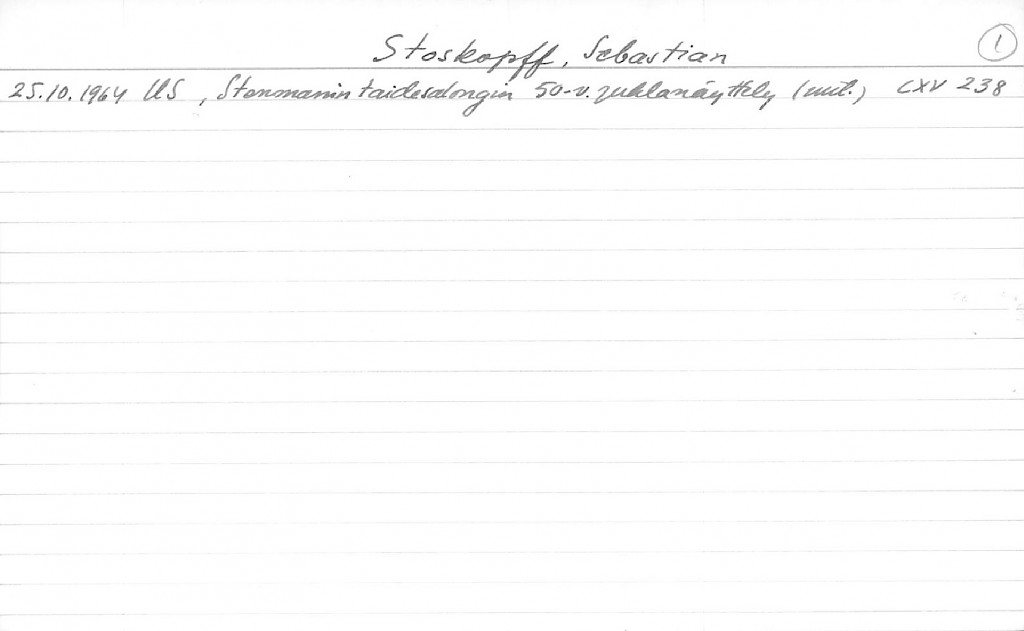 Stoskopff, Sebastian
1
25.10.1964 US, Stenmanin taidesalongin 50-v. juhlanäyttely (mt.) CXV 238